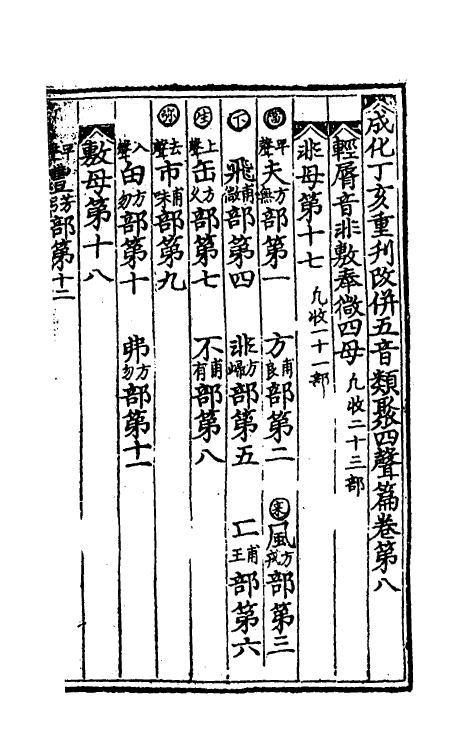 成化丁亥重刊改併五音類聚四聲篇卷第八
輕脣音非敷奉微四母 凡收二十三部
非母第十七 凡收二十一部
平聲夫方無部第一 方甫良部第二 風方戎部第三
飛甫微部第四 非方歸部第五 匚甫王部第六
上聲缶方久部第七 不甫有部第八
去聲巿甫味部第九
入聲甶方勿部第十 弗方勿部第十一
敷母第十八
平聲豐芳部第十二